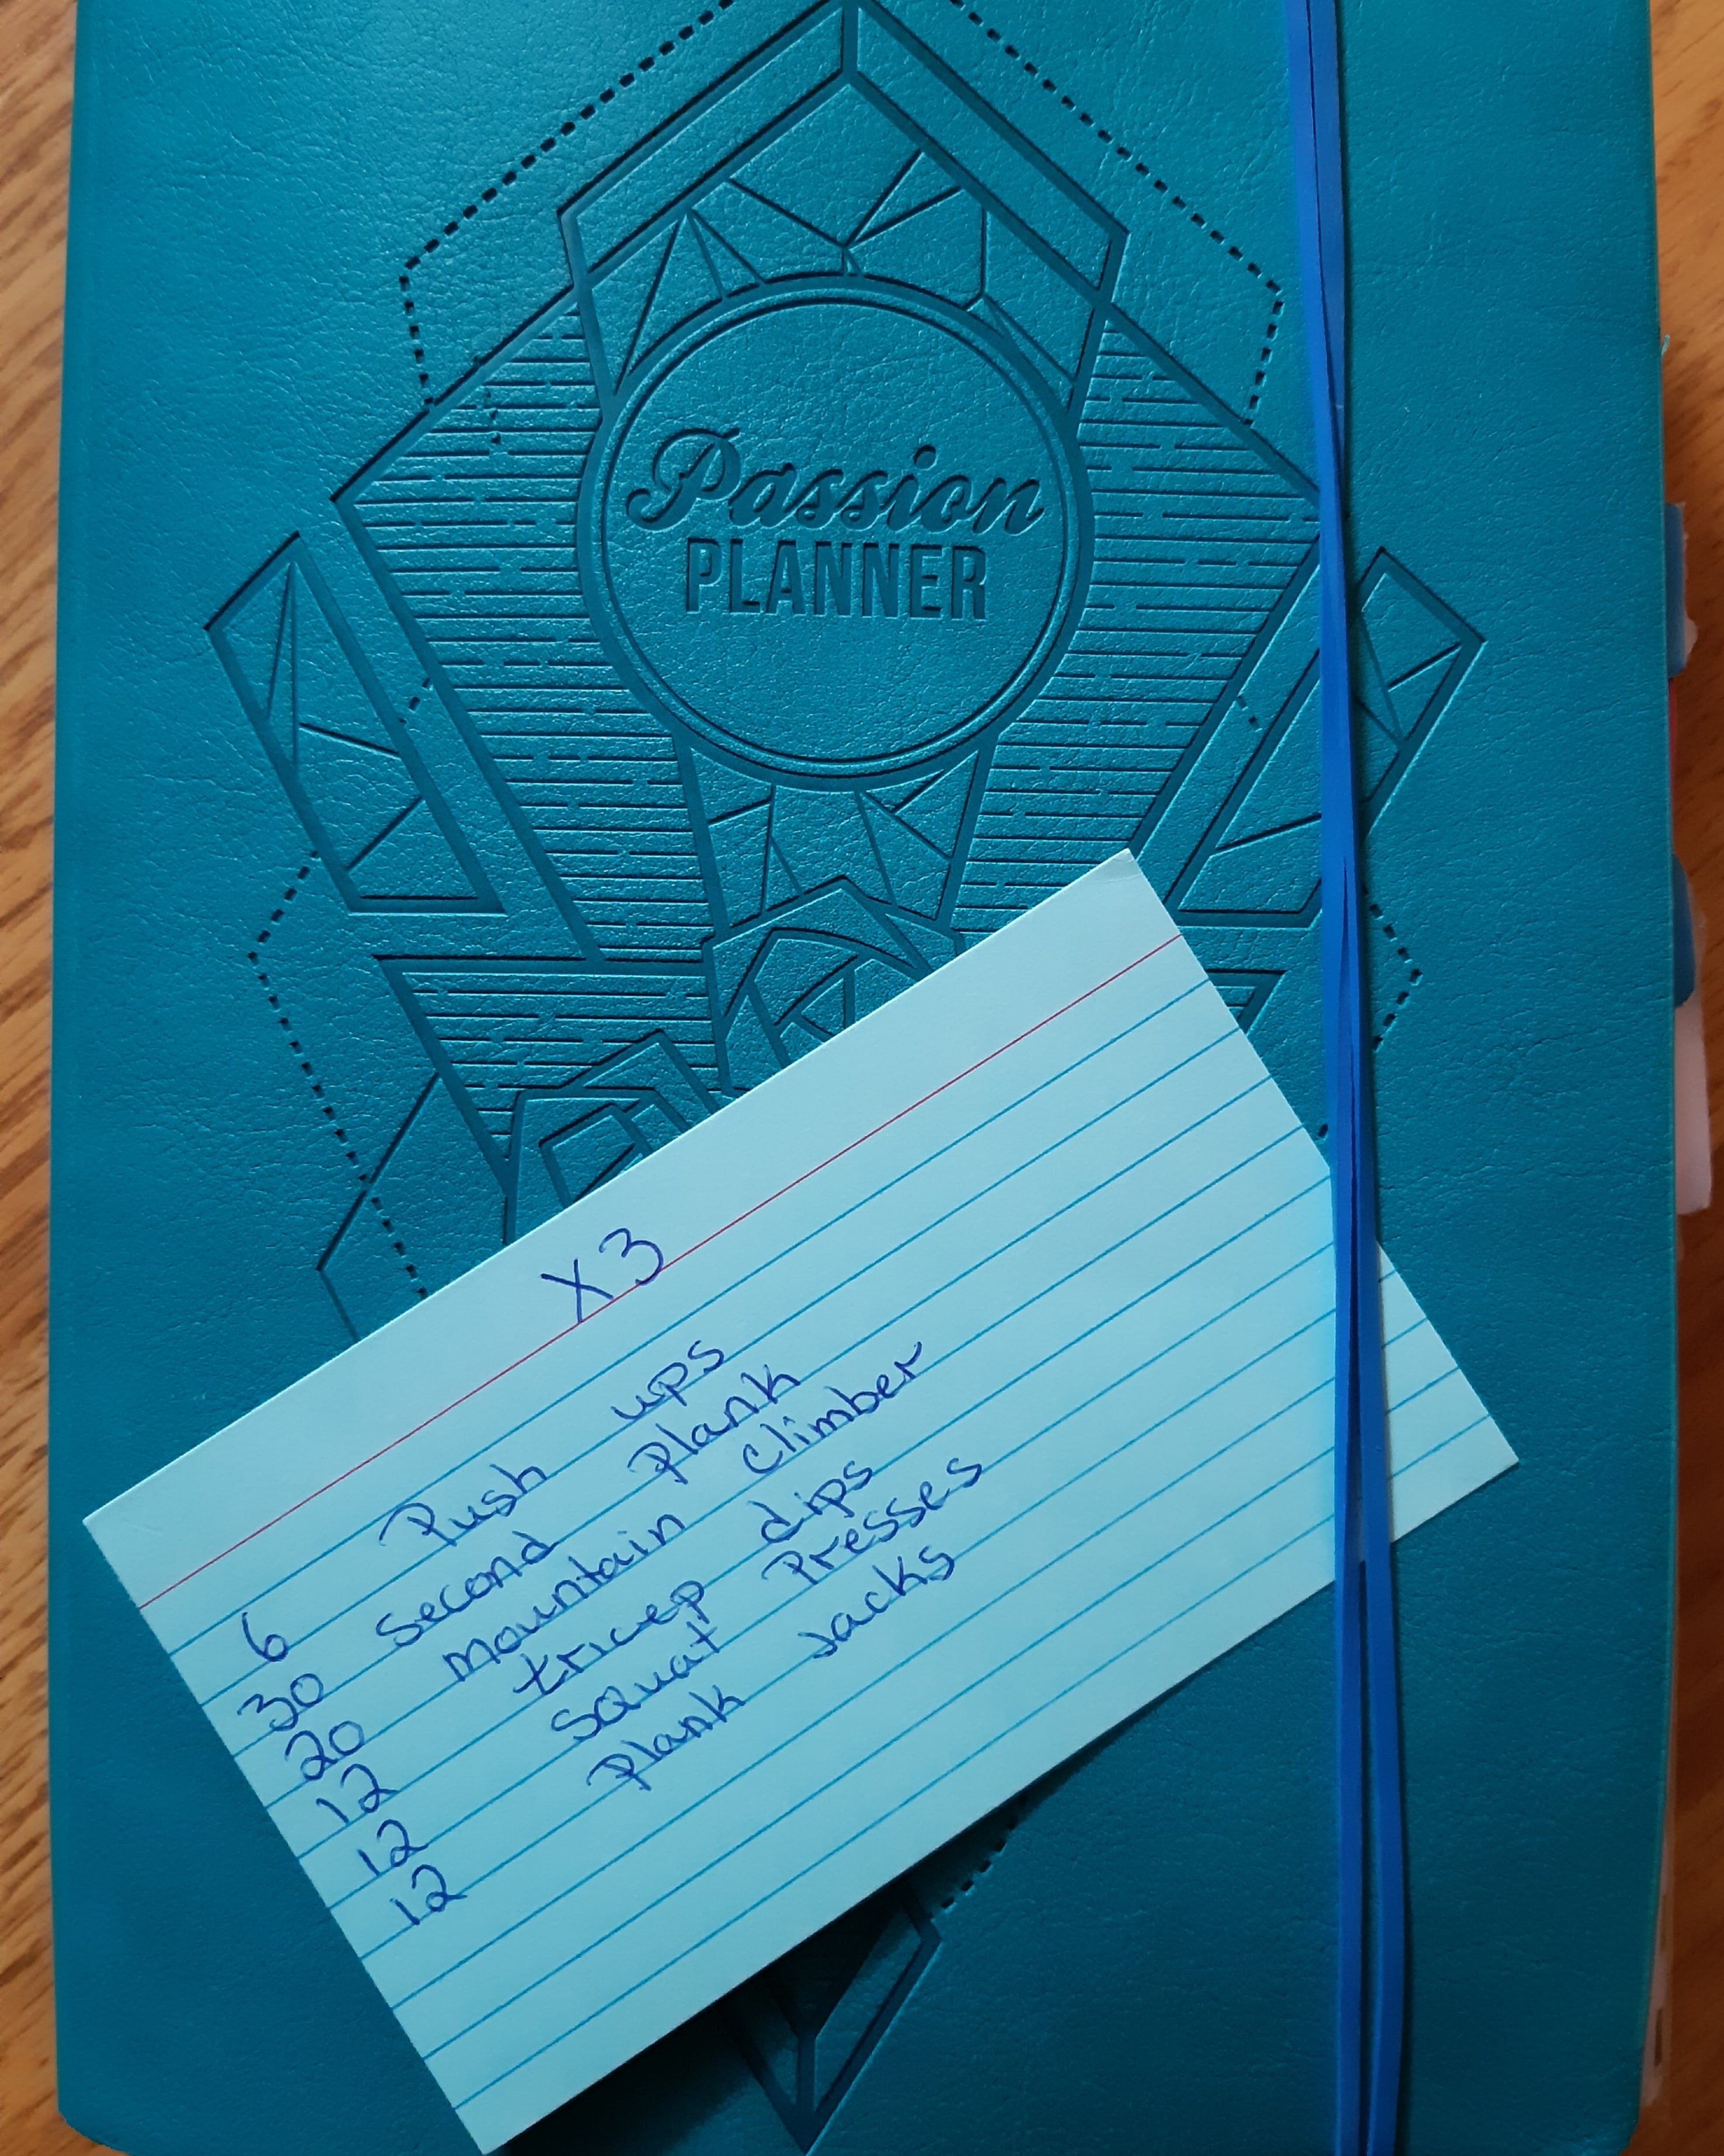 Passion
PLANNER
X3
6 Push ups
30 second Plank
20 mountain climber
12 tricep dips
12 squat Presses
12 Plank Jacks